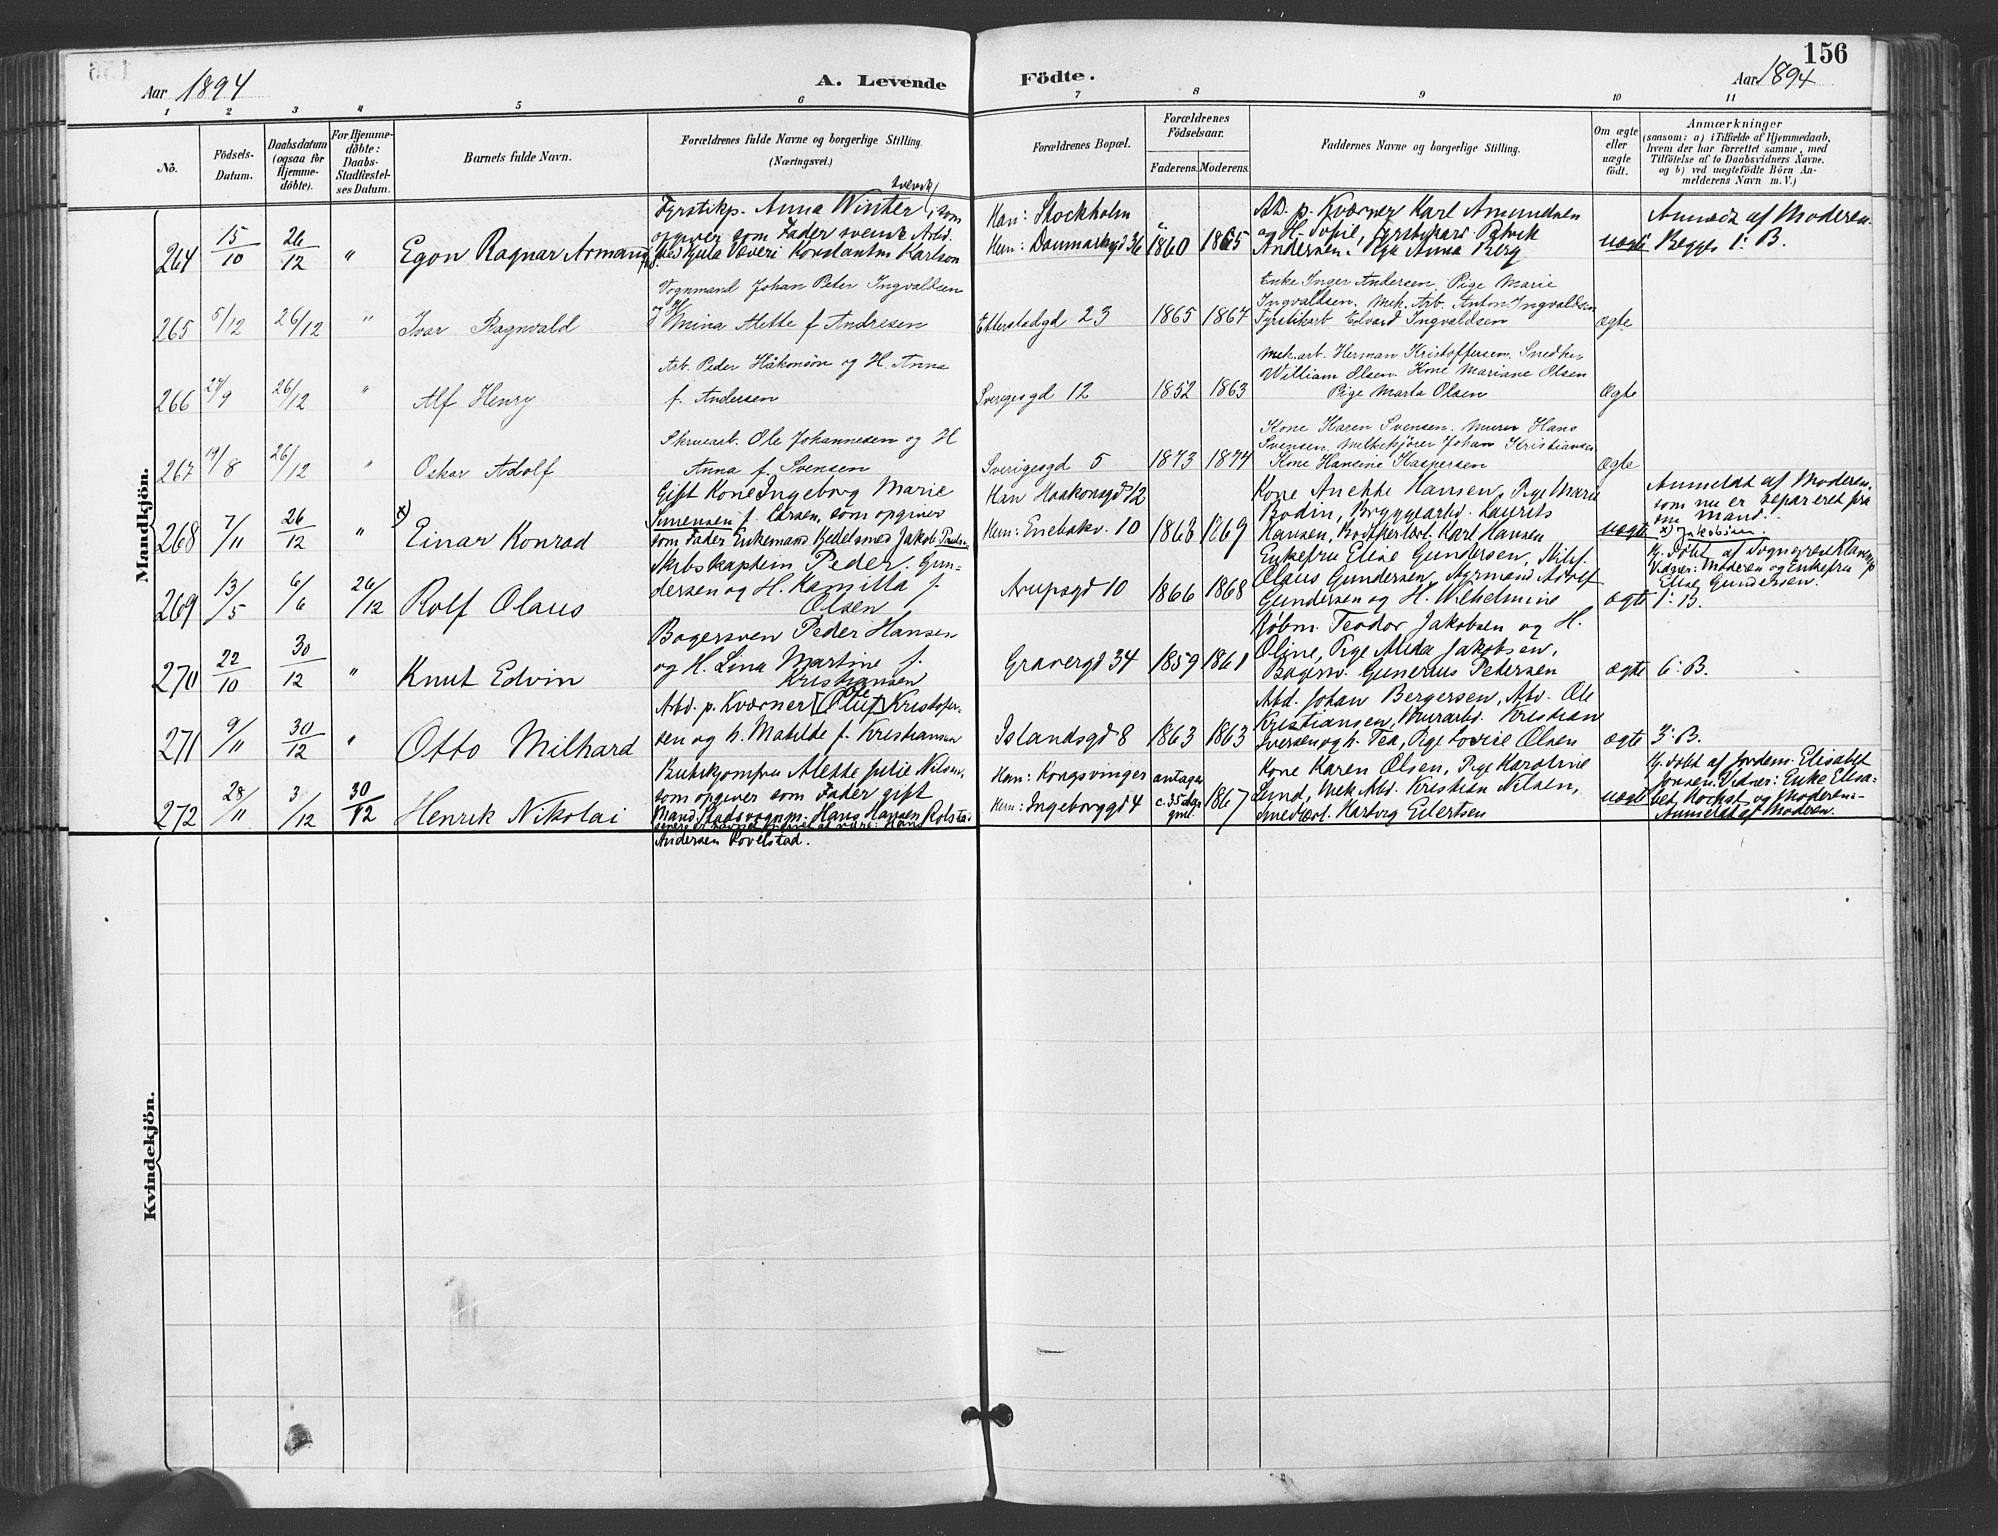 156
Aar 1894
A. Levende Födte.
Aar 1894
1 2 3 4 5 6 7 8 9 10 11
No.
Födsels-
Datum.
Daabsdatum
(ogsaa for
Hjemme-
döbte).
For Hjemme-
döbte:
Daabs-
Stadfæstel-
ses Datum.
Barnets fulde Navn.
Forældrenes fulde Navne og borgerlige Stilling.
(Næringsvei.)
Forældrenes Bopæl.
Forældrenes
Födselsaar.
Faderens. Moderens.
Faddernes Navne og borgerlige Stilling.
Om ægte
eller
uægte
födt.
Anmærkninger
(saasom: a) i Tilfælde af Hjemmedaab,
hvem der har forrettet samme, med
Tilföielse af to Daabsvidners Navne.
og b) ved uægtefödte Börn An-
melderens Navn m. V.)
Mandkjön.
264 15/10 26/12 " Egon Ragnar Armand
Fyrstikp. Anna Winter, som
opgiver som Fader svensk Arbd.
ved Hjula Væveri Konstantin Karlson
Han: Stockholm
Hun: Danmarksgd 36 1860 1865
Arb. p. Kværner Karl Amundsen
og H. Sofie, Fyrstikarb. Patrik
Andersen. Pige Anna Berg
uægte
Anmeldt af Moderen.
Begges 1' B.
265 5/12 26/12 " Ivar Ragnvald
Vognmand Johan Peter Ingvaldsen
Mina Alette f Andresen
Etterstadgd 23 1865 1867
Enke Inger Andersen. Pige Marie
Ingvaldsen. Mek. Arb. Anton Ingvaldsen
Fyrstikarb Edvard Ingvaldsen
ægte
266 24/9 26/12 " Alf Henry
Arb. Peder Håkonsön og H. Anna
f. Andersen
Sverigesgd 12 1852 1863
Mek.arb. Herman Kristoffersen. Snedker
William Olsen. Kone Mariane Olsen
Pige Marta Olsen
Ægte
267 19/8 26/12 " Oskar Adolf
Skruearb. Ole Johannesen og H
Anna f. Svensen
Sverigesgd 5 1873 1874
Kone Karen Svensen. Murer Hans
Svensen. Melkekjører Johan Kristiansen
Kone Hansine Kaspersen
Ægte
268 7/11 26/12 " x) Einar Konrad
Gift Kone Ingeborg Marie
Simensen f. Larsen, som opgiver
som Fader Enkemand Kjedelsmed Jakob
Han Haakonsgd 12
Hun: Enebakv. 10 1863 1869
Kone Anette Hansen, Pige Marie
Bodin, Bryggearbd. Laurits
Hansen, Karl Hansen
uægte
Anmeldt af Moderen,
som nu er separeret fra
sin Mand.
x) Jakobsen.
269 13/5 6/6 26/12 Rolf Olaus
Skibskaptein Peder Gun-
dersen og H. Kamilla f.
Olsen
Arupsgd 10 1866 1868
Enkefru Elise Gundersen,
Olaus Gundersen, Styrmand Adolf
Gundersen og H. Wilhelmine
ægte
Hj. döbt af Sognepræst Klaveness
Vidner: Moderen og Enkefru
Elise Gundersen.
1' B.
270 22/10 30/12 " Knut Edvin
Bagersven Peder Hansen
og H. Lina Martine f.
Kristiansen
Gravergd 34 1859 1861
Kjøbm. Teodor Jakobsen og H.
Oline, Pige Alida Jakobsen,
Bagersv. Gunerius Pedersen
ægte 6' B.
271 9/11 30/12 " Otto Milhard
Arbd. p. Kværner Ole Kristofer-
sen og h. Matilde f. Kristiansen
Islandsgd 8 1863 1863
Arbd. Johan Bergersen, Arb. Ole
Kristiansen, Murarbd. Kristian
Iversen og h. Tea, Pige Lovise Olsen
ægte 3' B.
272 28/11 3/12 30/12 Henrik Nikolai
Budskjomfru Alette Julie Nilsen,
som opgiver som Fader gift
Mand Stadsvognm. Hans Hansen Rolstad
Andersen Povelstad.
Han: Kongsvinger
Hun: Ingeborggd 4 antages
c. 35 Aar
gml. 1867
Kone Karen Olsen, Pige Karoline
Lund, Mek. Arb. Kristian Nilsen,
Smedarb. Hartvig Eilertsen
uægte
Hj. döbt af Jordem. Elisabet
Jensen. Vidner: Enke Elisa-
bet og Moderen.
Anmeldt af Moderen.
Kvindekjön.